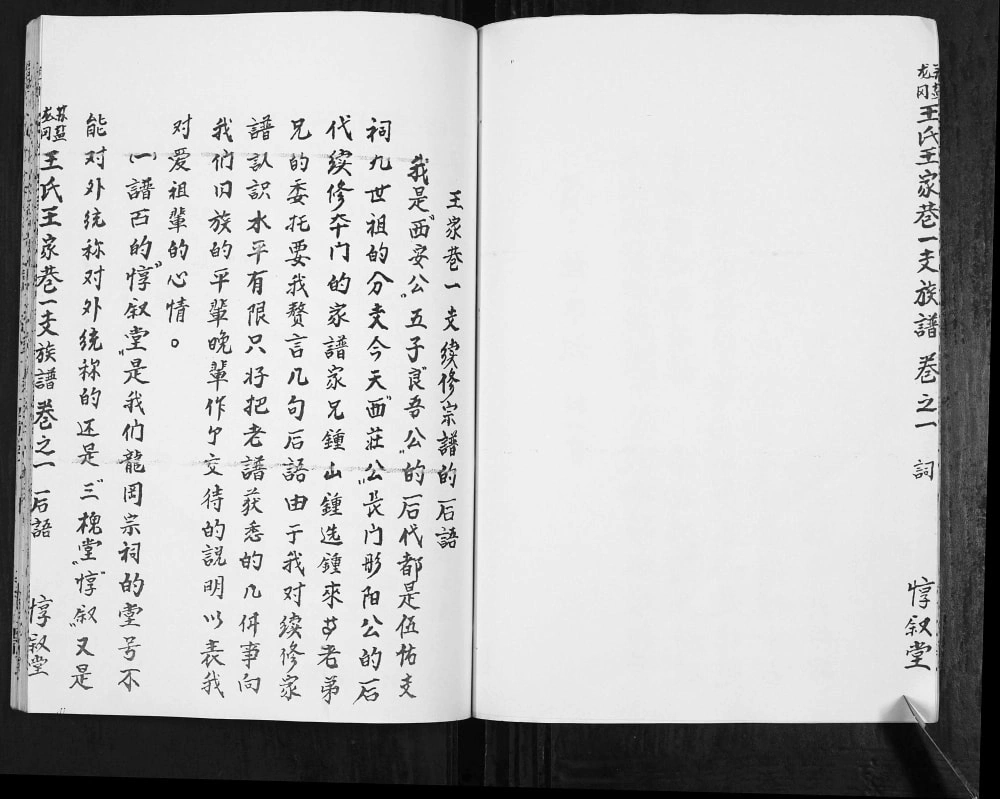 苏盐龙冈 王氏王家巷一支族譜 卷之一 詞 惇叙堂
王家巷一支续修宗譜的后語
我是"西安公"五子"良吾公"的后代都是伍佑支
祠九世祖的分支今天"西莊公"長门彤阳公的后
代续修夲门的家譜家兄鍾山鍾选鍾來等老弟
兄的委托要我赘言几句后語由于我对续修家
譜認識水平有限只好把老譜获悉的几件事向
我们旧族的平輩晚輩作个交待的説明以表我
对爱祖輩的心情。
(一)譜百的"惇叙堂"是我们龍岡宗祠的堂号不
能对外统称对外统称的还是"三槐堂""惇叙"又是
苏盐龙冈 王氏王家巷一支族譜 卷之一 后語 惇叙堂